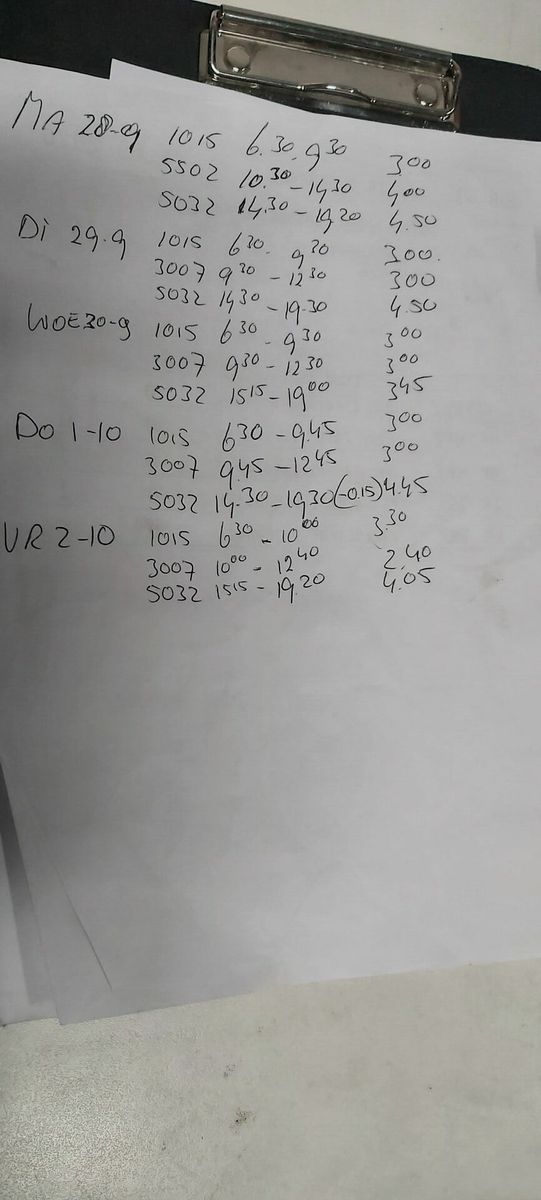 MA 28-9 1015 6.30-9 30 3 00
5502 10.30-14 30 4 00
5032 14.30-19 20 4.50
Di 29.9 1015 6 30. 9 30 3.00.
3007 9 30 - 12 30 3 00
5032 14 30 - 19.30 4.50
WOE 30-9 1015 6 30 - 9 30 3 00
3007 9 30 - 12 30 3 00
5032 15 15 - 19 00 3 45
Do 1-10 1015 6 30 - 9.45 3 00
3007 9.45 - 12 45 3 00
5032 14.30-19 30 (-0.15) 4.45
VR 2-10 1015 6 30 - 10 00 3.30
3007 10 00 - 12 40 2.40
5032 15 15 - 19.20 4.05